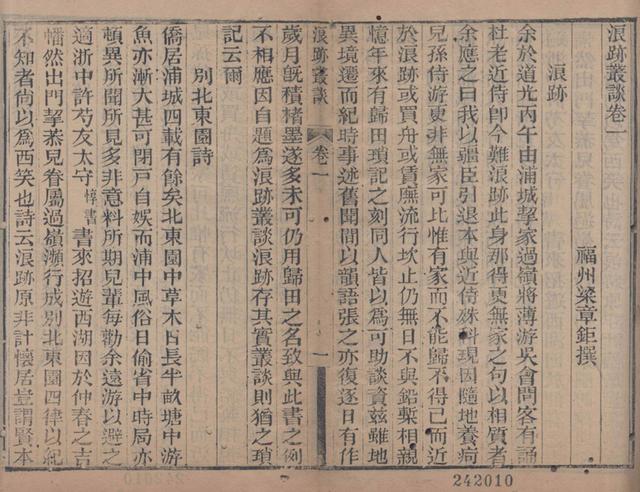 浪跡叢談卷一
福州梁章鉅撰
浪跡
余於道光丙午由浦城挈家過嶺將薄游吳會問客有誦
杜老近侍即今難浪跡此身那得更無家之句以相質者
余應之曰我以疆臣引退本與近侍殊科現因隨地養痾
兒孫侍游更非無家可比惟有家而不能歸不得已而近
於浪跡或買舟或賃廡流行坎止仍無日不與鉛槧相親
憶年來有歸田瑣記之刻同人皆以為可助談資茲雖地
異境遷而紀時事述舊聞間以韻語張之亦復逐日有作
浪跡叢談
卷一
一
歲月既積楮墨遂多未可仍用歸田之名致與此書之例
不相應因自題為浪跡叢談浪跡存其實叢談則猶之瑣
記云爾
別北東園詩
僑居浦城四載有餘矣北東園中草木日長半畝塘中游
魚亦漸大甚可閉戶自娛而浦中風俗日偷省中時局亦
頓異所聞所見多非意料所期兒輩每勸余遠游以避之
適浙中許芍友太守惇書書來招遊西湖因於仲春之吉
幡然出門挈恭兒眷屬過嶺瀕行成別北東園四律以紀
不知者尚以為西笑也詩云浪跡原非計懷居豈謂賢本
242010